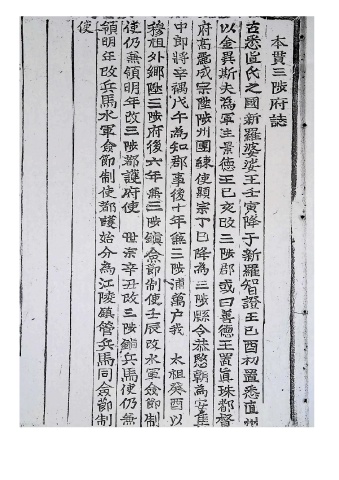 本貫三陟府誌
古悉直氏之國新羅婆娑王壬寅降于新羅智證王乙酉初置悉直州
以金異斯夫爲軍主景德王己亥改三陟郡或曰善德王置眞珠都督
府高麗成宗陞陟州團練使顯宗丁巳降爲三陟縣令恭愍朝爲安集
中郎將辛禑戊午爲知郡事後十年無三陟浦萬戶我 太祖癸酉以
穆祖外鄉陞三陟府後六年無三陟鎭僉節制使壬辰改水軍僉節制
使仍兼領明年改三陟都護府使 世宗辛丑改三陟鋪兵馬使仍兼
領明年改兵馬水軍僉節制使都護始分爲江陵鎭管兵馬同僉節制
使